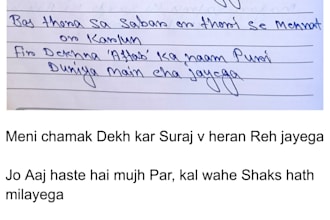 Bas thona sa Saban on thoni se Mehnat
on Kanlun
Fin Dekhna 'Aftab' Ka naam Puni
Duniya main cha jayega
Meni chamak Dekh kar Suraj v heran Reh jayega
Jo Aaj haste hai mujh Par, kal wahe Shaks hath
milayega